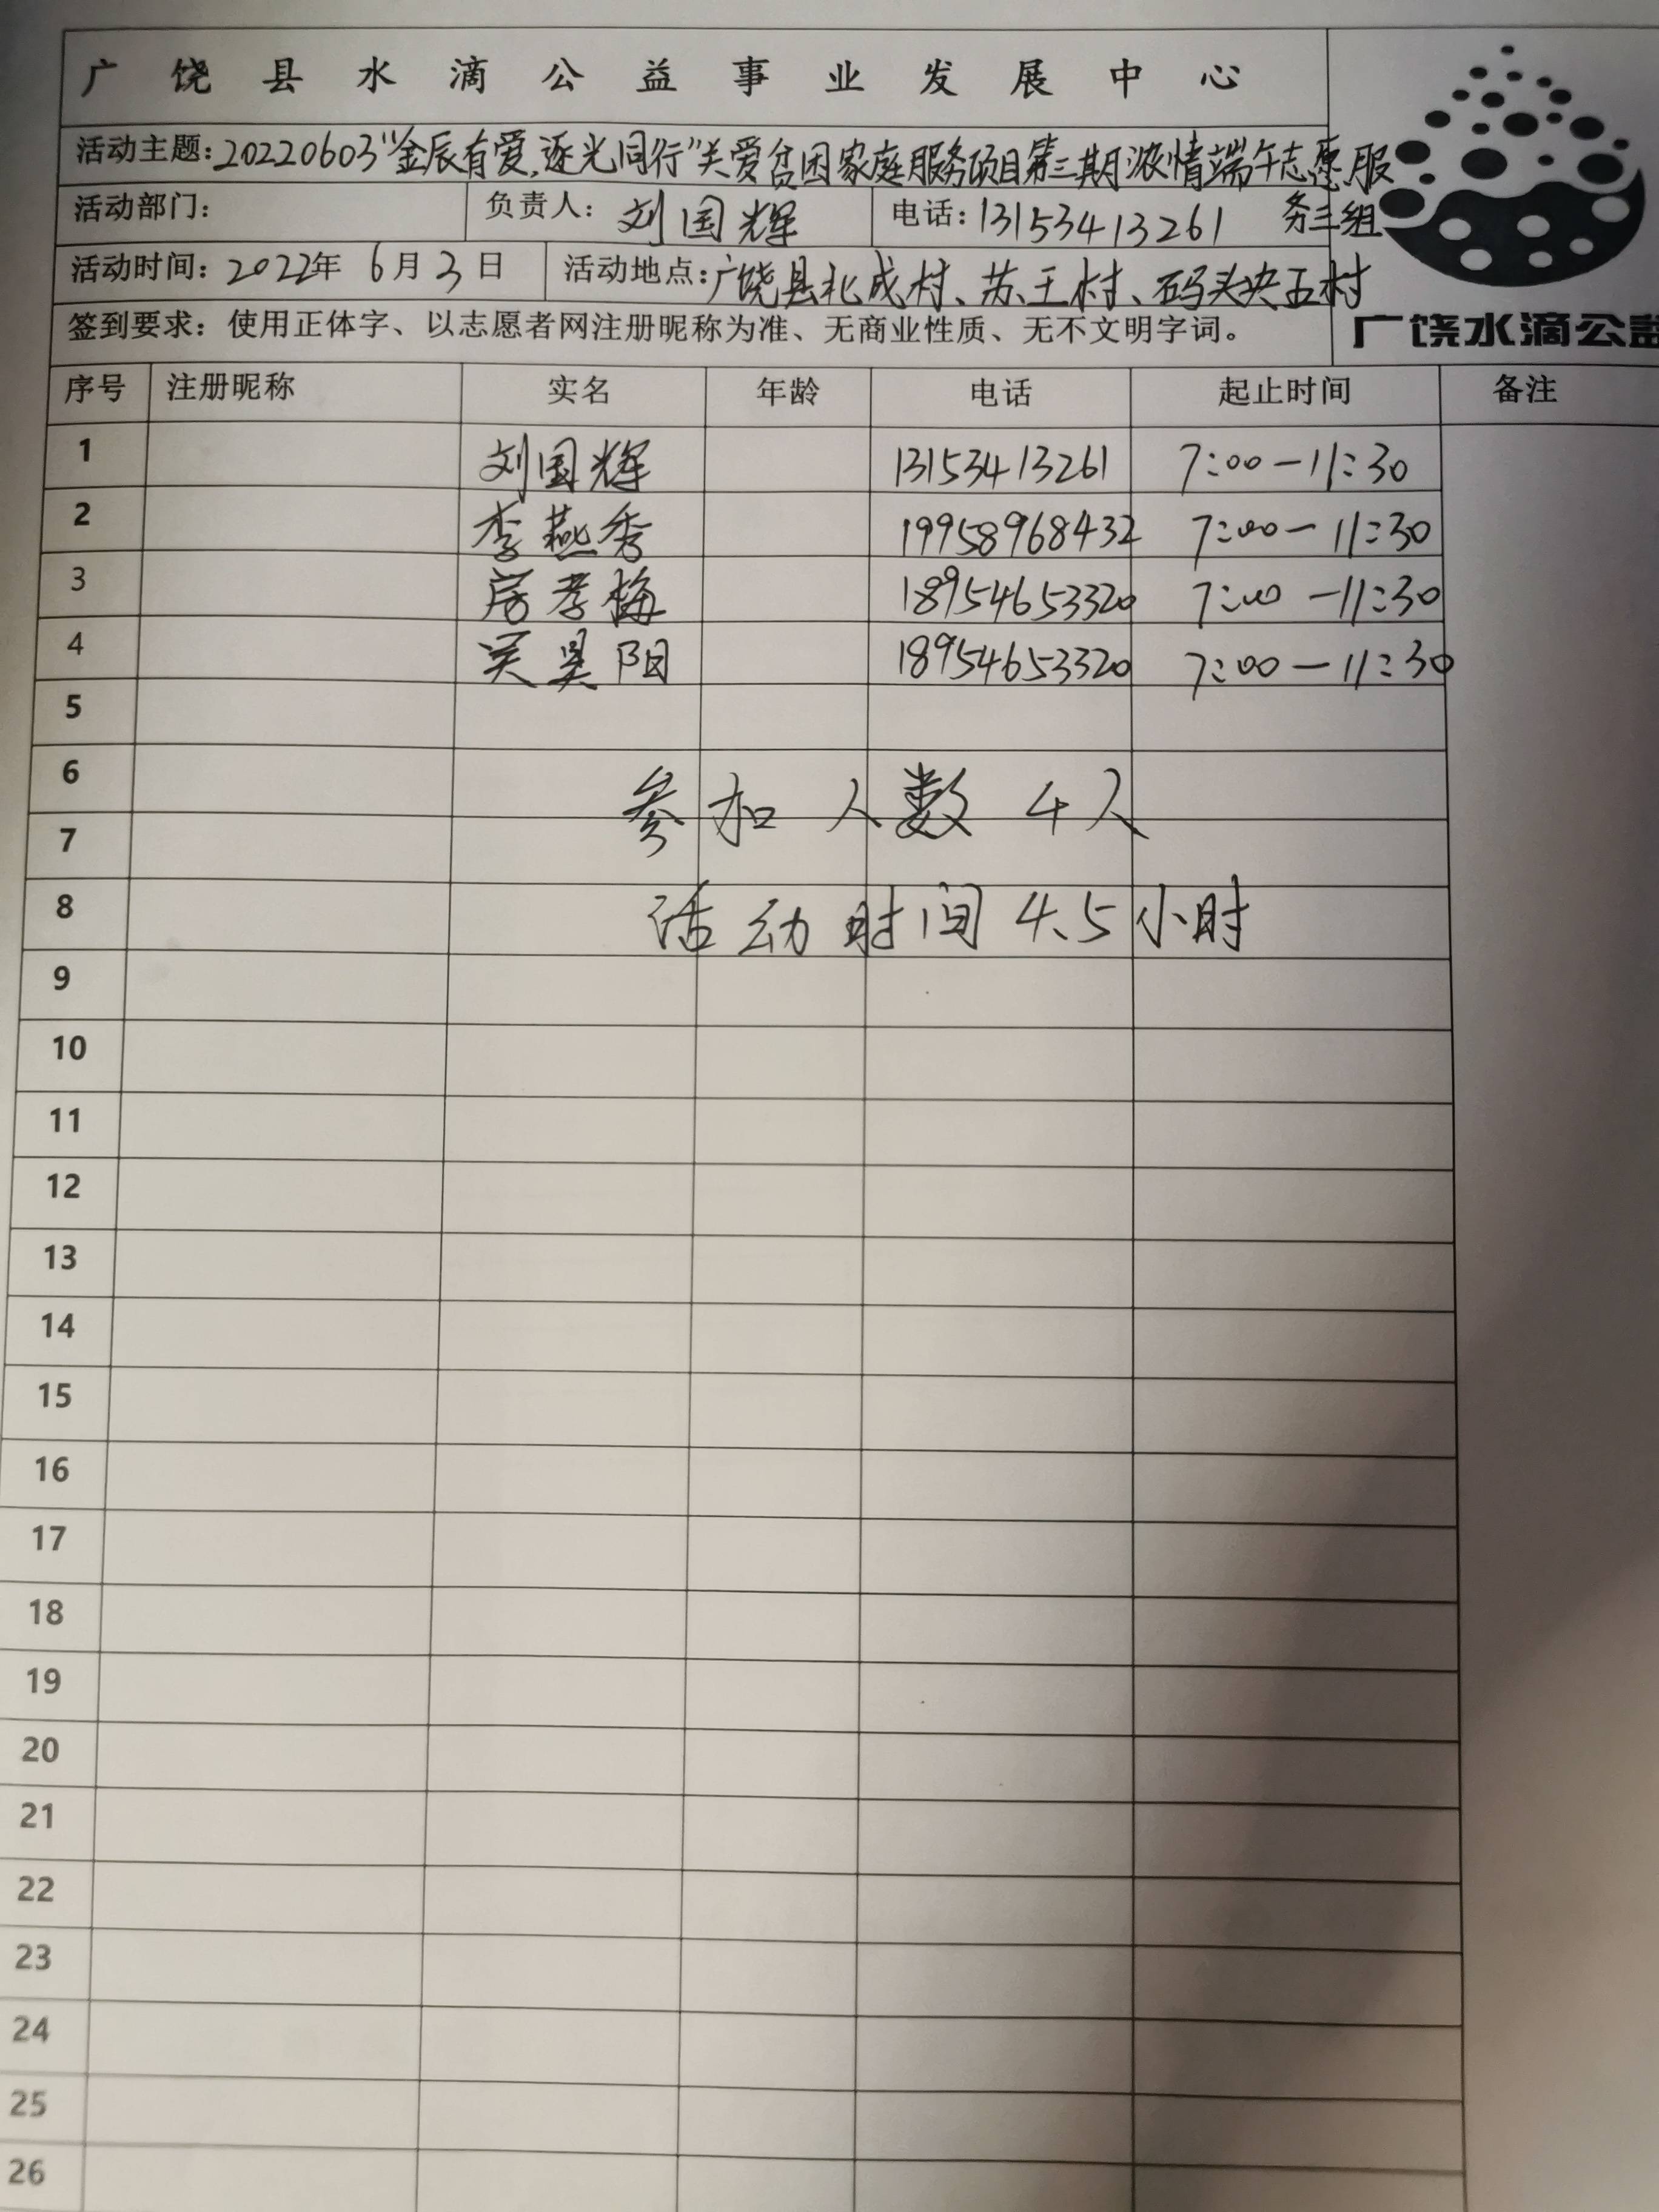 广饶县水滴公益事业发展中心
活动主题:20220603"金辰有爱,逐光同行"关爱贫困家庭服务项目第三期浓情端午志愿服
务三组
活动部门: 负责人: 刘国辉 电话:13153413261
活动时间: 2022年 6月3日 活动地点:广饶县北成村、苏王村、码头央五村
签到要求: 使用正体字、以志愿者网注册昵称为准、无商业性质、无不文明字词。
广饶水滴公益
序号 注册昵称 实名 年龄 电话 起止时间 备注
1 刘国辉 13153413261 7:00-11:30
2 李燕秀 19958968432 7:00-11:30
3 房孝梅 18954653320 7:00-11:30
4 吴昊阳 18954653320 7:00-11:30
5
6
参加人数4人
7
8 活动时间4.5小时
9
10
11
12
13
14
15
16
17
18
19
20
21
22
23
24
25
26